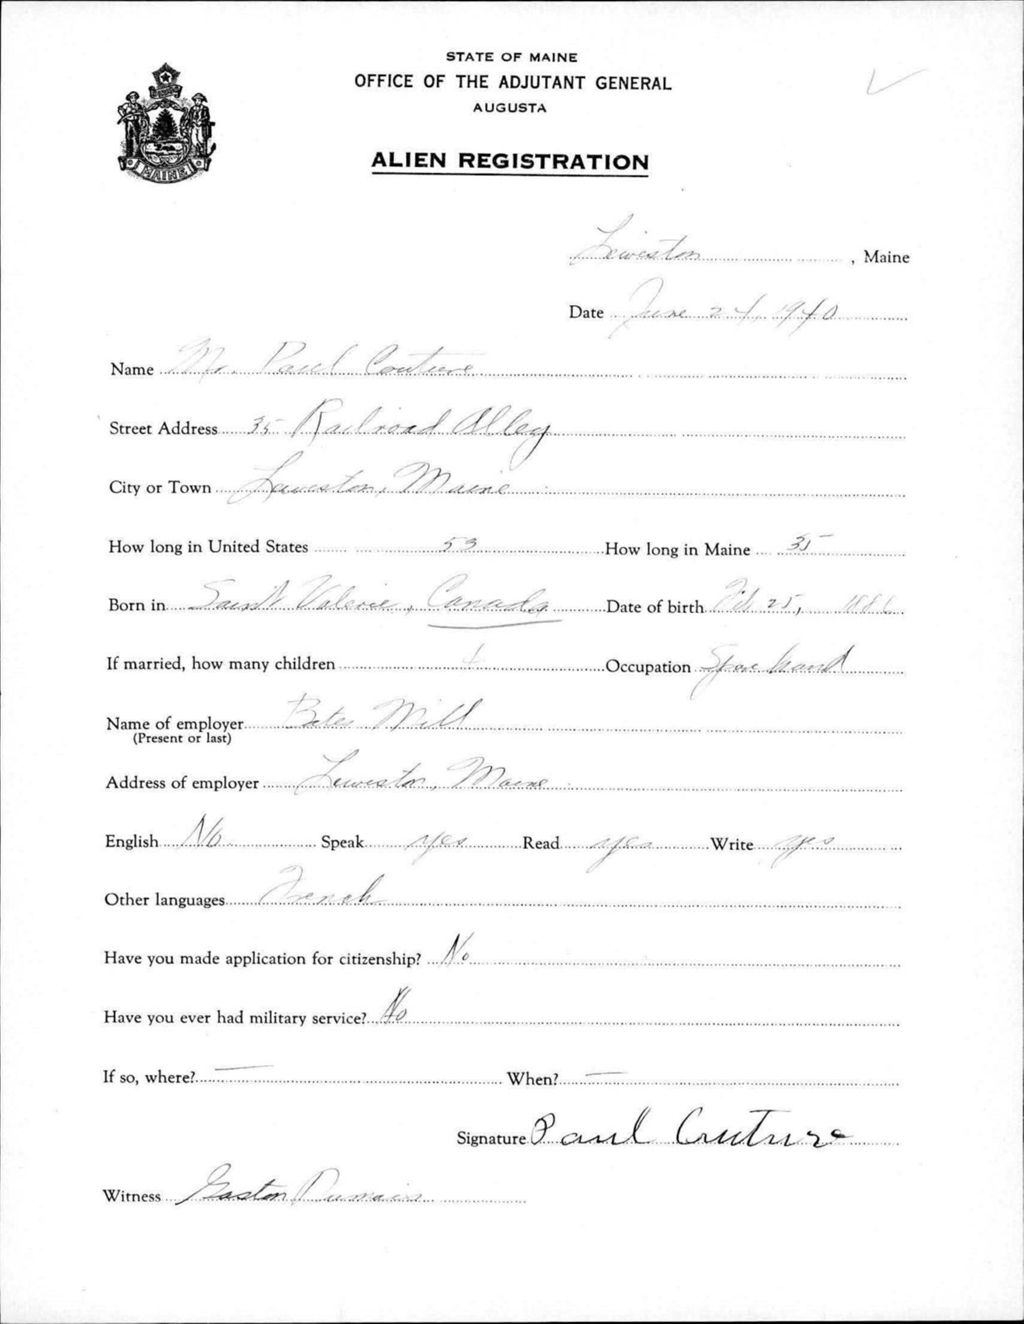 STATE OF MAINE
OFFICE OF THE ADJUTANT GENERAL
AUGUSTA
ALIEN REGISTRATION
MAINE
Lewiston, Maine
Date June 24, 1940
Name Mr. Paul Couture
Street Address 35 Railroad Alley
City or Town Lewiston, Maine
How long in United States 53 How long in Maine 35
Born in Saint Valerie, Canada Date of birth Feb 25, 1886
If married, how many children Occupation Spare hand
Name of employer Bates Mill
(Present or last)
Address of employer Lewiston, Maine
English No Speak yes Read yes Write yes
Other languages French
Have you made application for citizenship? No
Have you ever had military service? No
If so, where? — When? —
Signature Paul Couture
Witness Gaston Dumais